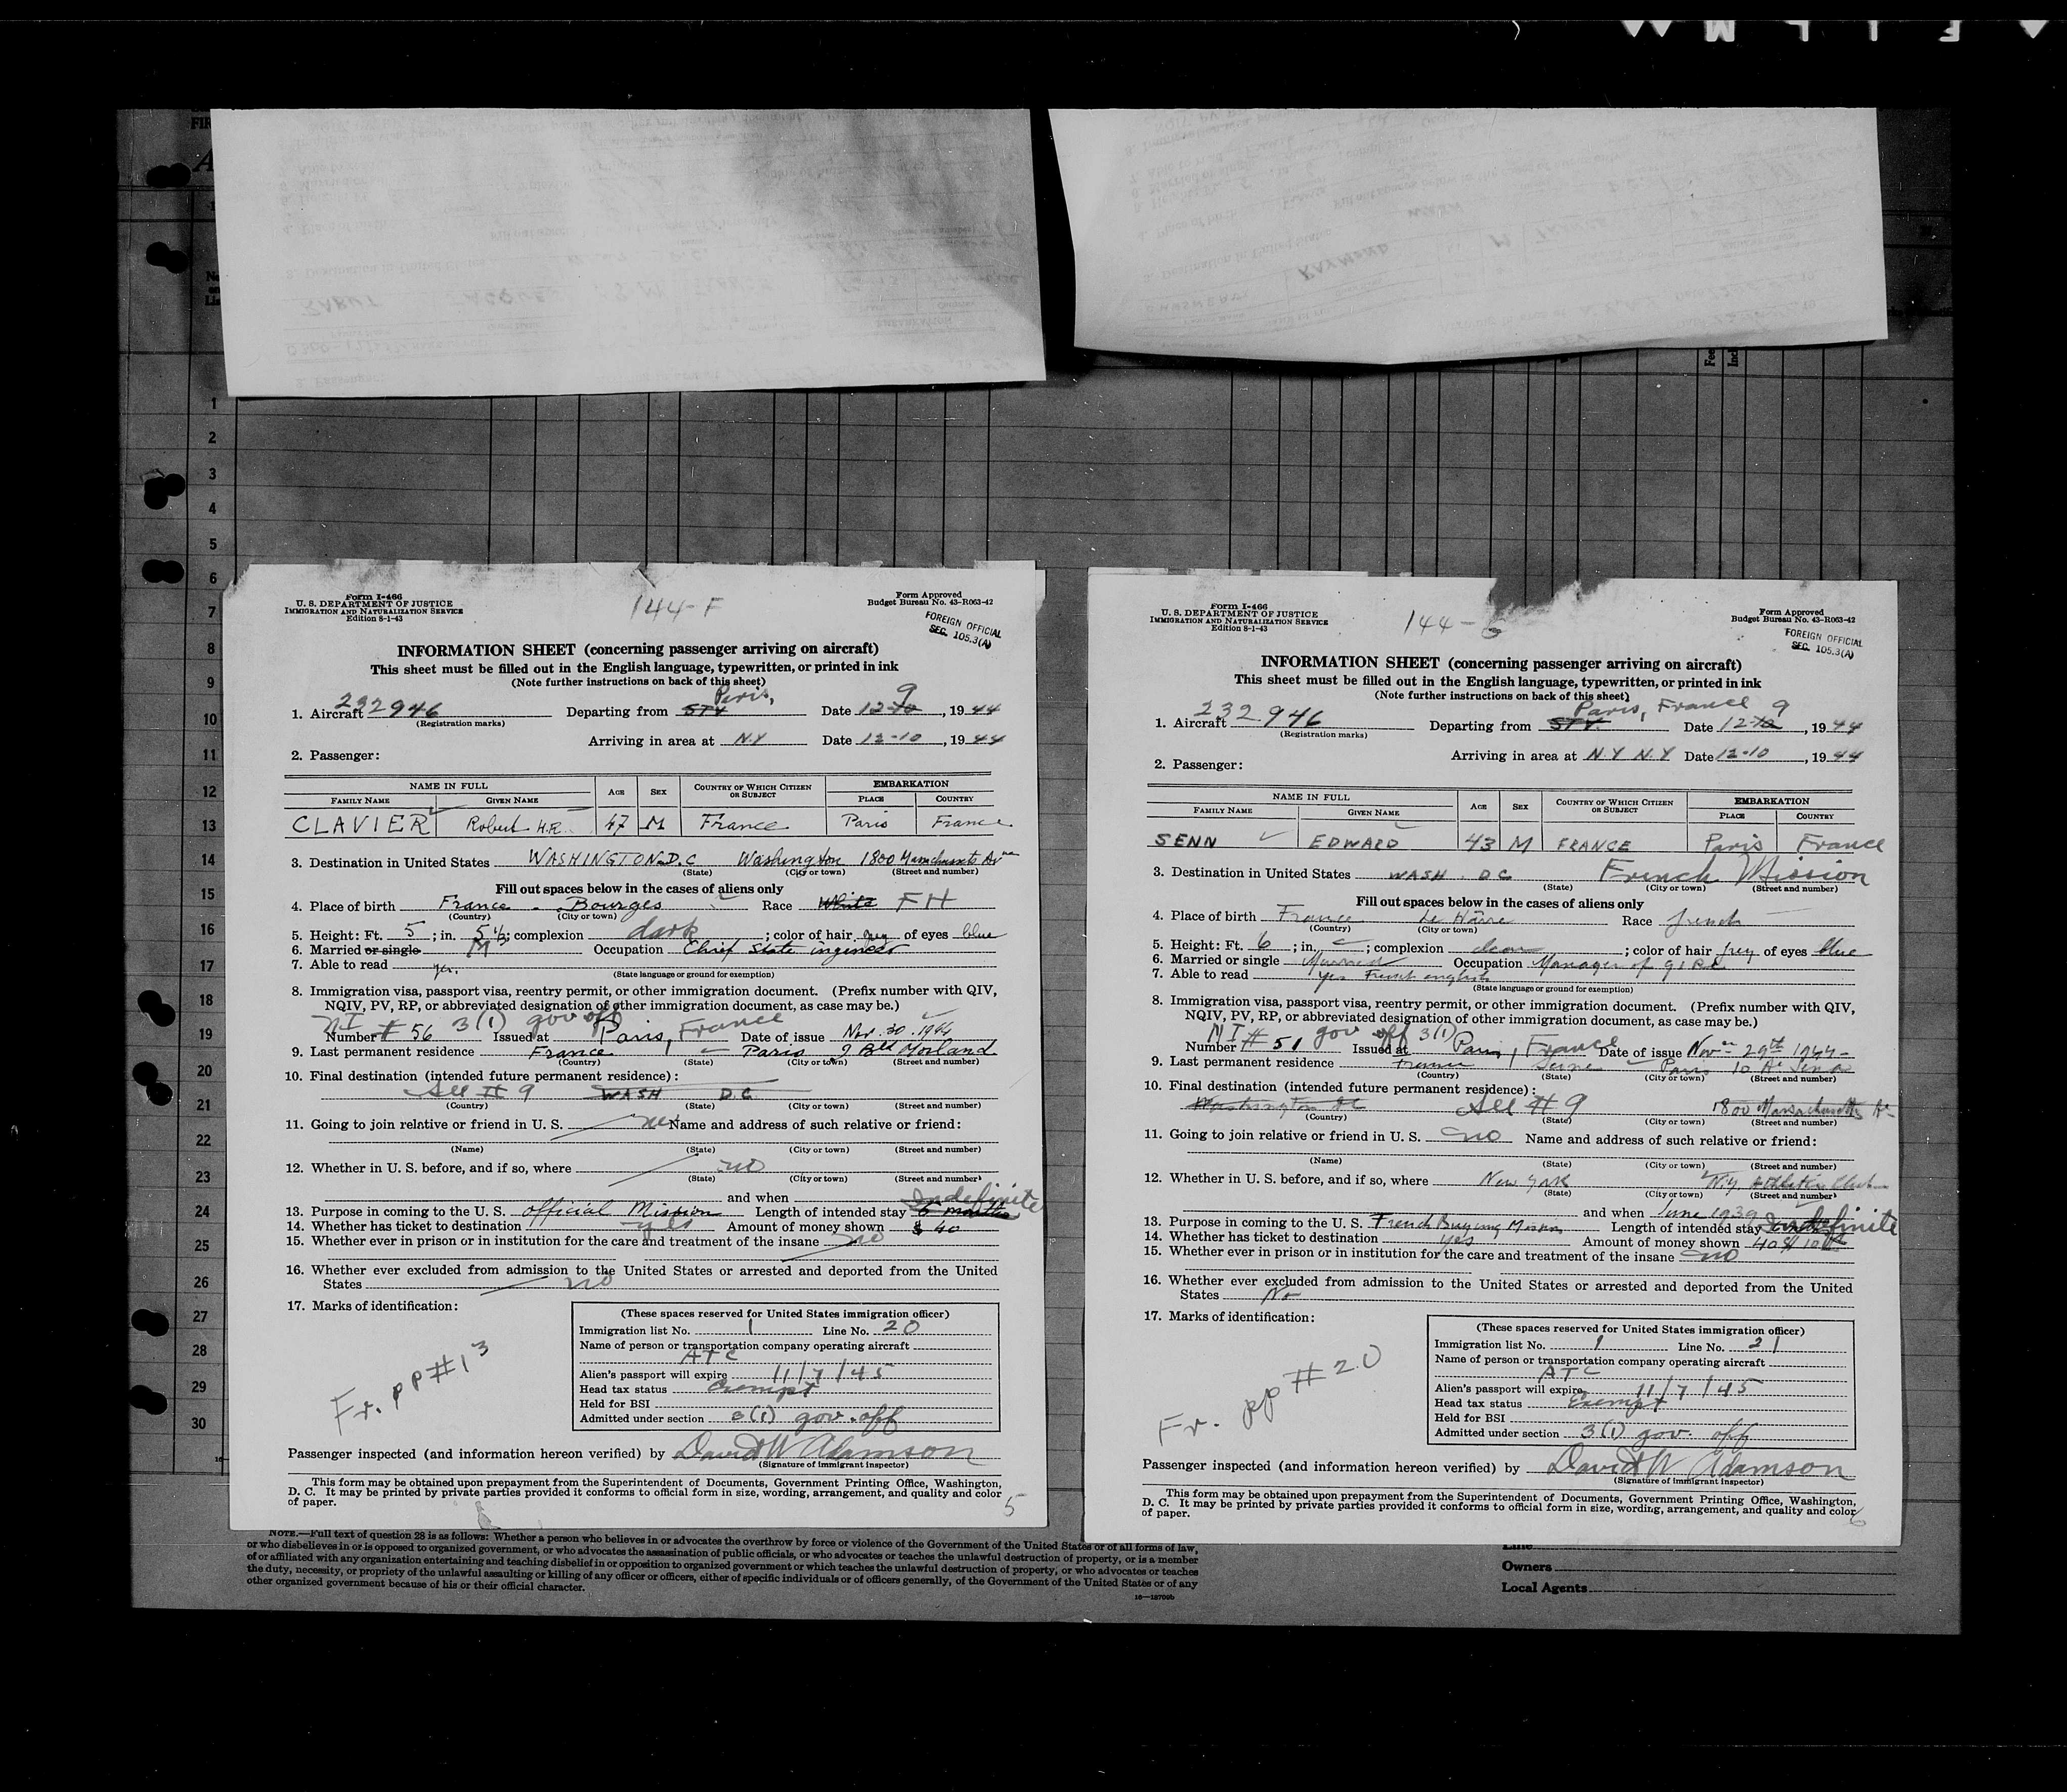 Form I-466
U. S. DEPARTMENT OF JUSTICE
IMMIGRATION AND NATURALIZATION SERVICE
Edition 8-1-43
144-F
Form Approved
Budget Bureau No. 43-R063-42
FOREIGN OFFICIAL
SEC. 105.3(A)
INFORMATION SHEET (concerning passenger arriving on aircraft)
This sheet must be filled out in the English language, typewritten, or printed in ink
(Note further instructions on back of this sheet)
1. Aircraft 232946 Departing from STV Paris, Date 12-10 9, 1944
(Registration marks)
Arriving in area at N.Y Date 12-10, 1944
2. Passenger:
NAME IN FULL AGE SEX COUNTRY OF WHICH CITIZEN OR SUBJECT EMBARKATION
FAMILY NAME GIVEN NAME PLACE COUNTRY
CLAVIER Robert H.R. 47 M France Paris France
3. Destination in United States WASHINGTON D.C Washington 1800 Massachusetts Av
(State) (City or town) (Street and number)
Fill out spaces below in the cases of aliens only
4. Place of birth France - Bourges Race White FH
(Country) (City or town)
5. Height: Ft. 5; in. 5 1/2; complexion dark; color of hair grey of eyes blue
6. Married or single M Occupation Chief State ingineer
7. Able to read yes.
(State language or ground for exemption)
8. Immigration visa, passport visa, reentry permit, or other immigration document. (Prefix number with QIV,
NQIV, PV, RP, or abbreviated designation of other immigration document, as case may be.)
NI 3(1) gov off
Number # 56 Issued at Paris, France Date of issue Nov. 30. 1944
9. Last permanent residence France Paris 9 Bld Morland
(Country) (State) (City or town) (Street and number)
10. Final destination (intended future permanent residence):
See # 9 WASH D.C.
(Country) (State) (City or town) (Street and number)
11. Going to join relative or friend in U. S. no Name and address of such relative or friend:
(Name) (State) (City or town) (Street and number)
12. Whether in U. S. before, and if so, where no
(State) (City or town) (Street and number)
and when
13. Purpose in coming to the U. S. official Mission Length of intended stay 6 months Indefinite
14. Whether has ticket to destination yes Amount of money shown $ 40
15. Whether ever in prison or in institution for the care and treatment of the insane no
16. Whether ever excluded from admission to the United States or arrested and deported from the United
States no
17. Marks of identification:
Fr. pp #13
(These spaces reserved for United States immigration officer)
Immigration list No. 1 Line No. 20
Name of person or transportation company operating aircraft
ATC
Alien's passport will expire 11/7/45
Head tax status Exempt
Held for BSI
Admitted under section 3(1) gov. off
Passenger inspected (and information hereon verified) by David W Adamson
(Signature of immigrant inspector)
This form may be obtained upon prepayment from the Superintendent of Documents, Government Printing Office, Washington,
D. C. It may be printed by private parties provided it conforms to official form in size, wording, arrangement, and quality and color
of paper.
5
Form I-466
U. S. DEPARTMENT OF JUSTICE
IMMIGRATION AND NATURALIZATION SERVICE
Edition 8-1-43
144-G
Form Approved
Budget Bureau No. 43-R063-42
FOREIGN OFFICIAL
SEC. 105.3(A)
INFORMATION SHEET (concerning passenger arriving on aircraft)
This sheet must be filled out in the English language, typewritten, or printed in ink
(Note further instructions on back of this sheet)
1. Aircraft 232946 Departing from STV. Paris, France Date 12-10 9, 1944
(Registration marks)
Arriving in area at N.Y N.Y Date 12-10, 1944
2. Passenger:
NAME IN FULL AGE SEX COUNTRY OF WHICH CITIZEN OR SUBJECT EMBARKATION
FAMILY NAME GIVEN NAME PLACE COUNTRY
SENN EDWARD 43 M FRANCE Paris France
3. Destination in United States WASH. DC French Mission
(State) (City or town) (Street and number)
Fill out spaces below in the cases of aliens only
4. Place of birth France Le Havre Race french
(Country) (City or town)
5. Height: Ft. 6; in.; complexion clear; color of hair grey of eyes blue
6. Married or single Married Occupation Manager of
7. Able to read yes French english
(State language or ground for exemption)
8. Immigration visa, passport visa, reentry permit, or other immigration document. (Prefix number with QIV,
NQIV, PV, RP, or abbreviated designation of other immigration document, as case may be.)
NI gov off 3(1)
Number # 51 Issued at Paris, France Date of issue Nov 29th 1944
9. Last permanent residence France Seine Paris 10
(Country) (State) (City or town) (Street and number)
10. Final destination (intended future permanent residence):
Washington DC See # 9 1800 Massachusetts Av
(Country) (State) (City or town) (Street and number)
11. Going to join relative or friend in U. S. no Name and address of such relative or friend:
(Name) (State) (City or town) (Street and number)
12. Whether in U. S. before, and if so, where New York N.Y. Athletic Club
(State) (City or town) (Street and number)
and when June 1939
13. Purpose in coming to the U. S. French Buying Mission Length of intended stay Indefinite
14. Whether has ticket to destination yes Amount of money shown 40 $
15. Whether ever in prison or in institution for the care and treatment of the insane no
16. Whether ever excluded from admission to the United States or arrested and deported from the United
States No
17. Marks of identification:
Fr. pp #20
(These spaces reserved for United States immigration officer)
Immigration list No. 1 Line No. 21
Name of person or transportation company operating aircraft
ATC
Alien's passport will expire 11/7/45
Head tax status Exempt
Held for BSI
Admitted under section 3(1) gov. off
Passenger inspected (and information hereon verified) by David W Adamson
(Signature of immigrant inspector)
This form may be obtained upon prepayment from the Superintendent of Documents, Government Printing Office, Washington,
D. C. It may be printed by private parties provided it conforms to official form in size, wording, arrangement, and quality and color
of paper.
6
1
2
3
4
5
6
7
8
9
10
11
12
13
14
15
16
17
18
19
20
21
22
23
24
25
26
27
28
29
30
NOTE.—Full text of question 28 is as follows: Whether a person who believes in or advocates the overthrow by force or violence of the Government of the United States or of all forms of law,
or who disbelieves in or is opposed to organized government, or who advocates the assassination of public officials, or who advocates or teaches the unlawful destruction of property, or is a member
of or affiliated with any organization entertaining and teaching disbelief in or opposition to organized government or which teaches the unlawful destruction of property, or who advocates or teaches
the duty, necessity, or propriety of the unlawful assaulting or killing of any officer or officers, either of specific individuals or of officers generally, of the Government of the United States or of any
other organized government because of his or their official character.
Line
Owners
Local Agents